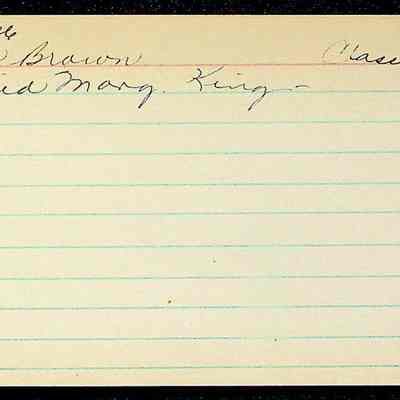 Brown Class
Marg. King -